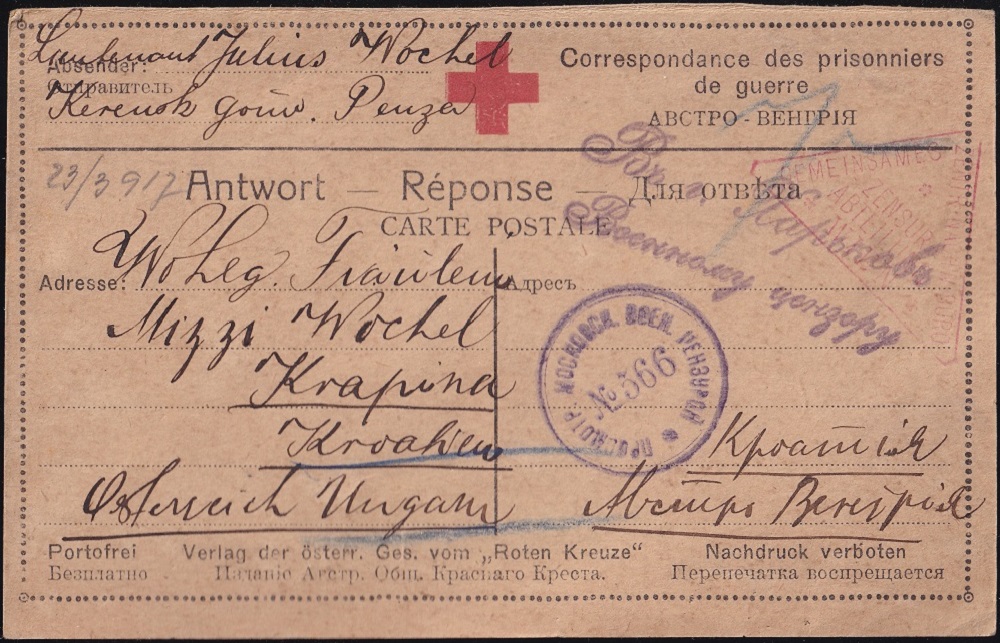 Lieutenant Julius Wochel
Absender:
Отправитель
Kerensk gouv. Penza
Correspondance des prisonniers
de guerre
АВСТРО-ВЕНГРІЯ
23/3 917
Antwort — Réponse — Для отвѣта
CARTE POSTALE
Adresse: Wohlg. Fräulein
Адресъ
Mizzi Wochel
Krapina
Kroatien
Кроатія
Österreich Ungarn
Австро Венгрія
Военному цензору
ПРОСМОТР. МОСКОВСК. ВОЕН. ЦЕНЗУРОЙ
№ 366
GEMEINSAMES
ZENSUR
ABTEIL
Portofrei Verlag der österr. Ges. vom „Roten Kreuze“ Nachdruck verboten
Безплатно Изданіе Австр. Общ. Краснаго Креста. Перепечатка воспрещается